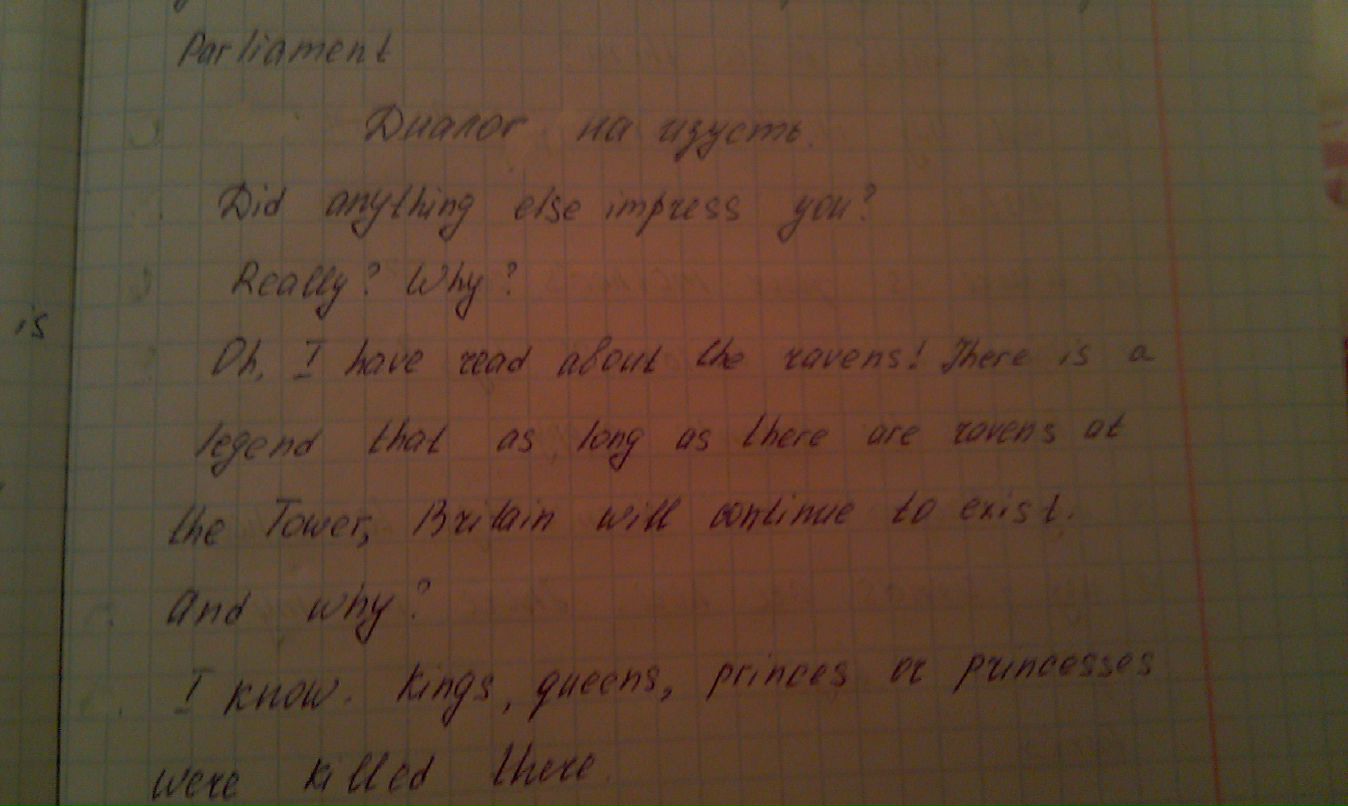 Parliament
Диалог на изусть.
Did anything else impress you?
Really? Why?
is
Oh, I have read about the ravens! There is a
legend that as long as there are ravens at
the Tower, Britain will continue to exist.
And why?
I know. Kings, queens, princes or princesses
were killed there.